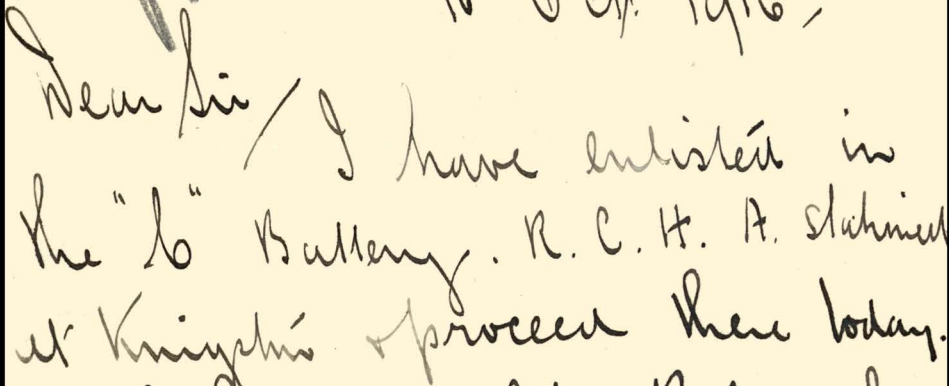 Oct. 1916,
Dear Sir / I have enlisted in
the "C" Battery. R. C. H. A. stationed
at Kingston & proceed there today.